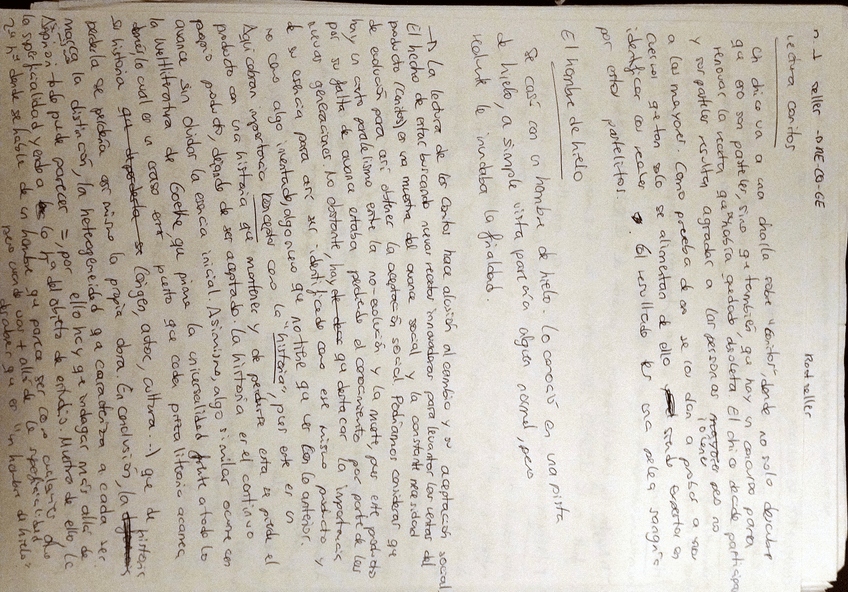 Best seller
n. 1 seller → ONE-CO-GE
Lectura conitos
Un chico va a una charla sobre "conitos", donde no solo descubre
que eso son pasteles, sino que también, que hay un concurso para
renovar la receta que había quedado obsoleta. El chico decide participar
y sus pasteles resultan agradar a las personas jóvenes pero no
a los mayores. Como prueba de un se los dan a probar a unos
cuervos que tan solo se alimentan de ello siendo expertos en
identificar con recelo. El resultado es una pelea sangrienta
por estos pastelitos
El hombre de hielo
Se casó con un hombre de hielo. Lo conoció en una pista
de hielo, a simple vista parecía alguien normal, pero
realmente le inundaba la frialdad.
→ La lectura de los Conitos hace alusión al cambio y su aceptación social
El hecho de estar buscando nuevas recetas innovadoras para levantar las ventas del
producto (conitos) es una muestra del avance social y la constante necesidad
de evolución para así obtener la aceptación social. Podríamos considerar que
hay un cierto paralelismo entre la no-evolución y la muerte, pues este producto
por su falta de avance estaba perdiendo el conocimiento por parte de las
nuevas generaciones. No obstante, hay que destacar la importancia
de su esencia para así ser identificado como ese mismo producto y
no como algo inventado, algo nuevo que no tiene que ver con lo anterior.
Aquí cobran importancia conceptos como la "historia", pues este es un
producto con una historia que mantener y, de perderse esta se pierde el
propio producto, dejando de ser aceptado. La historia es el continuo
avance sin olvidar la esencia inicial. Asimismo, algo similar ocurre con
la Weltliteratura de Goethe, que prima la universalidad frente a todo lo
demás lo cual es un craso error puesto que cada pieza literaria acarrea
su historia (origen, autor, cultura...) que de
perderla se perdería así mismo la propia obra. En conclusión, la historia
marca la distinción, la heterogeneidad que caracteriza a cada ser.
todo puede parecer =, por ello hay que indagar más allá de
la superficialidad y entrar a lo + allá del objeto de estudio. Muestra de ello, la
2ª h donde se habla de un hombre que parece ser como cualquier otro
pero cuando vas + allá de la superficialidad
descubres que es "un hombre de hielo"